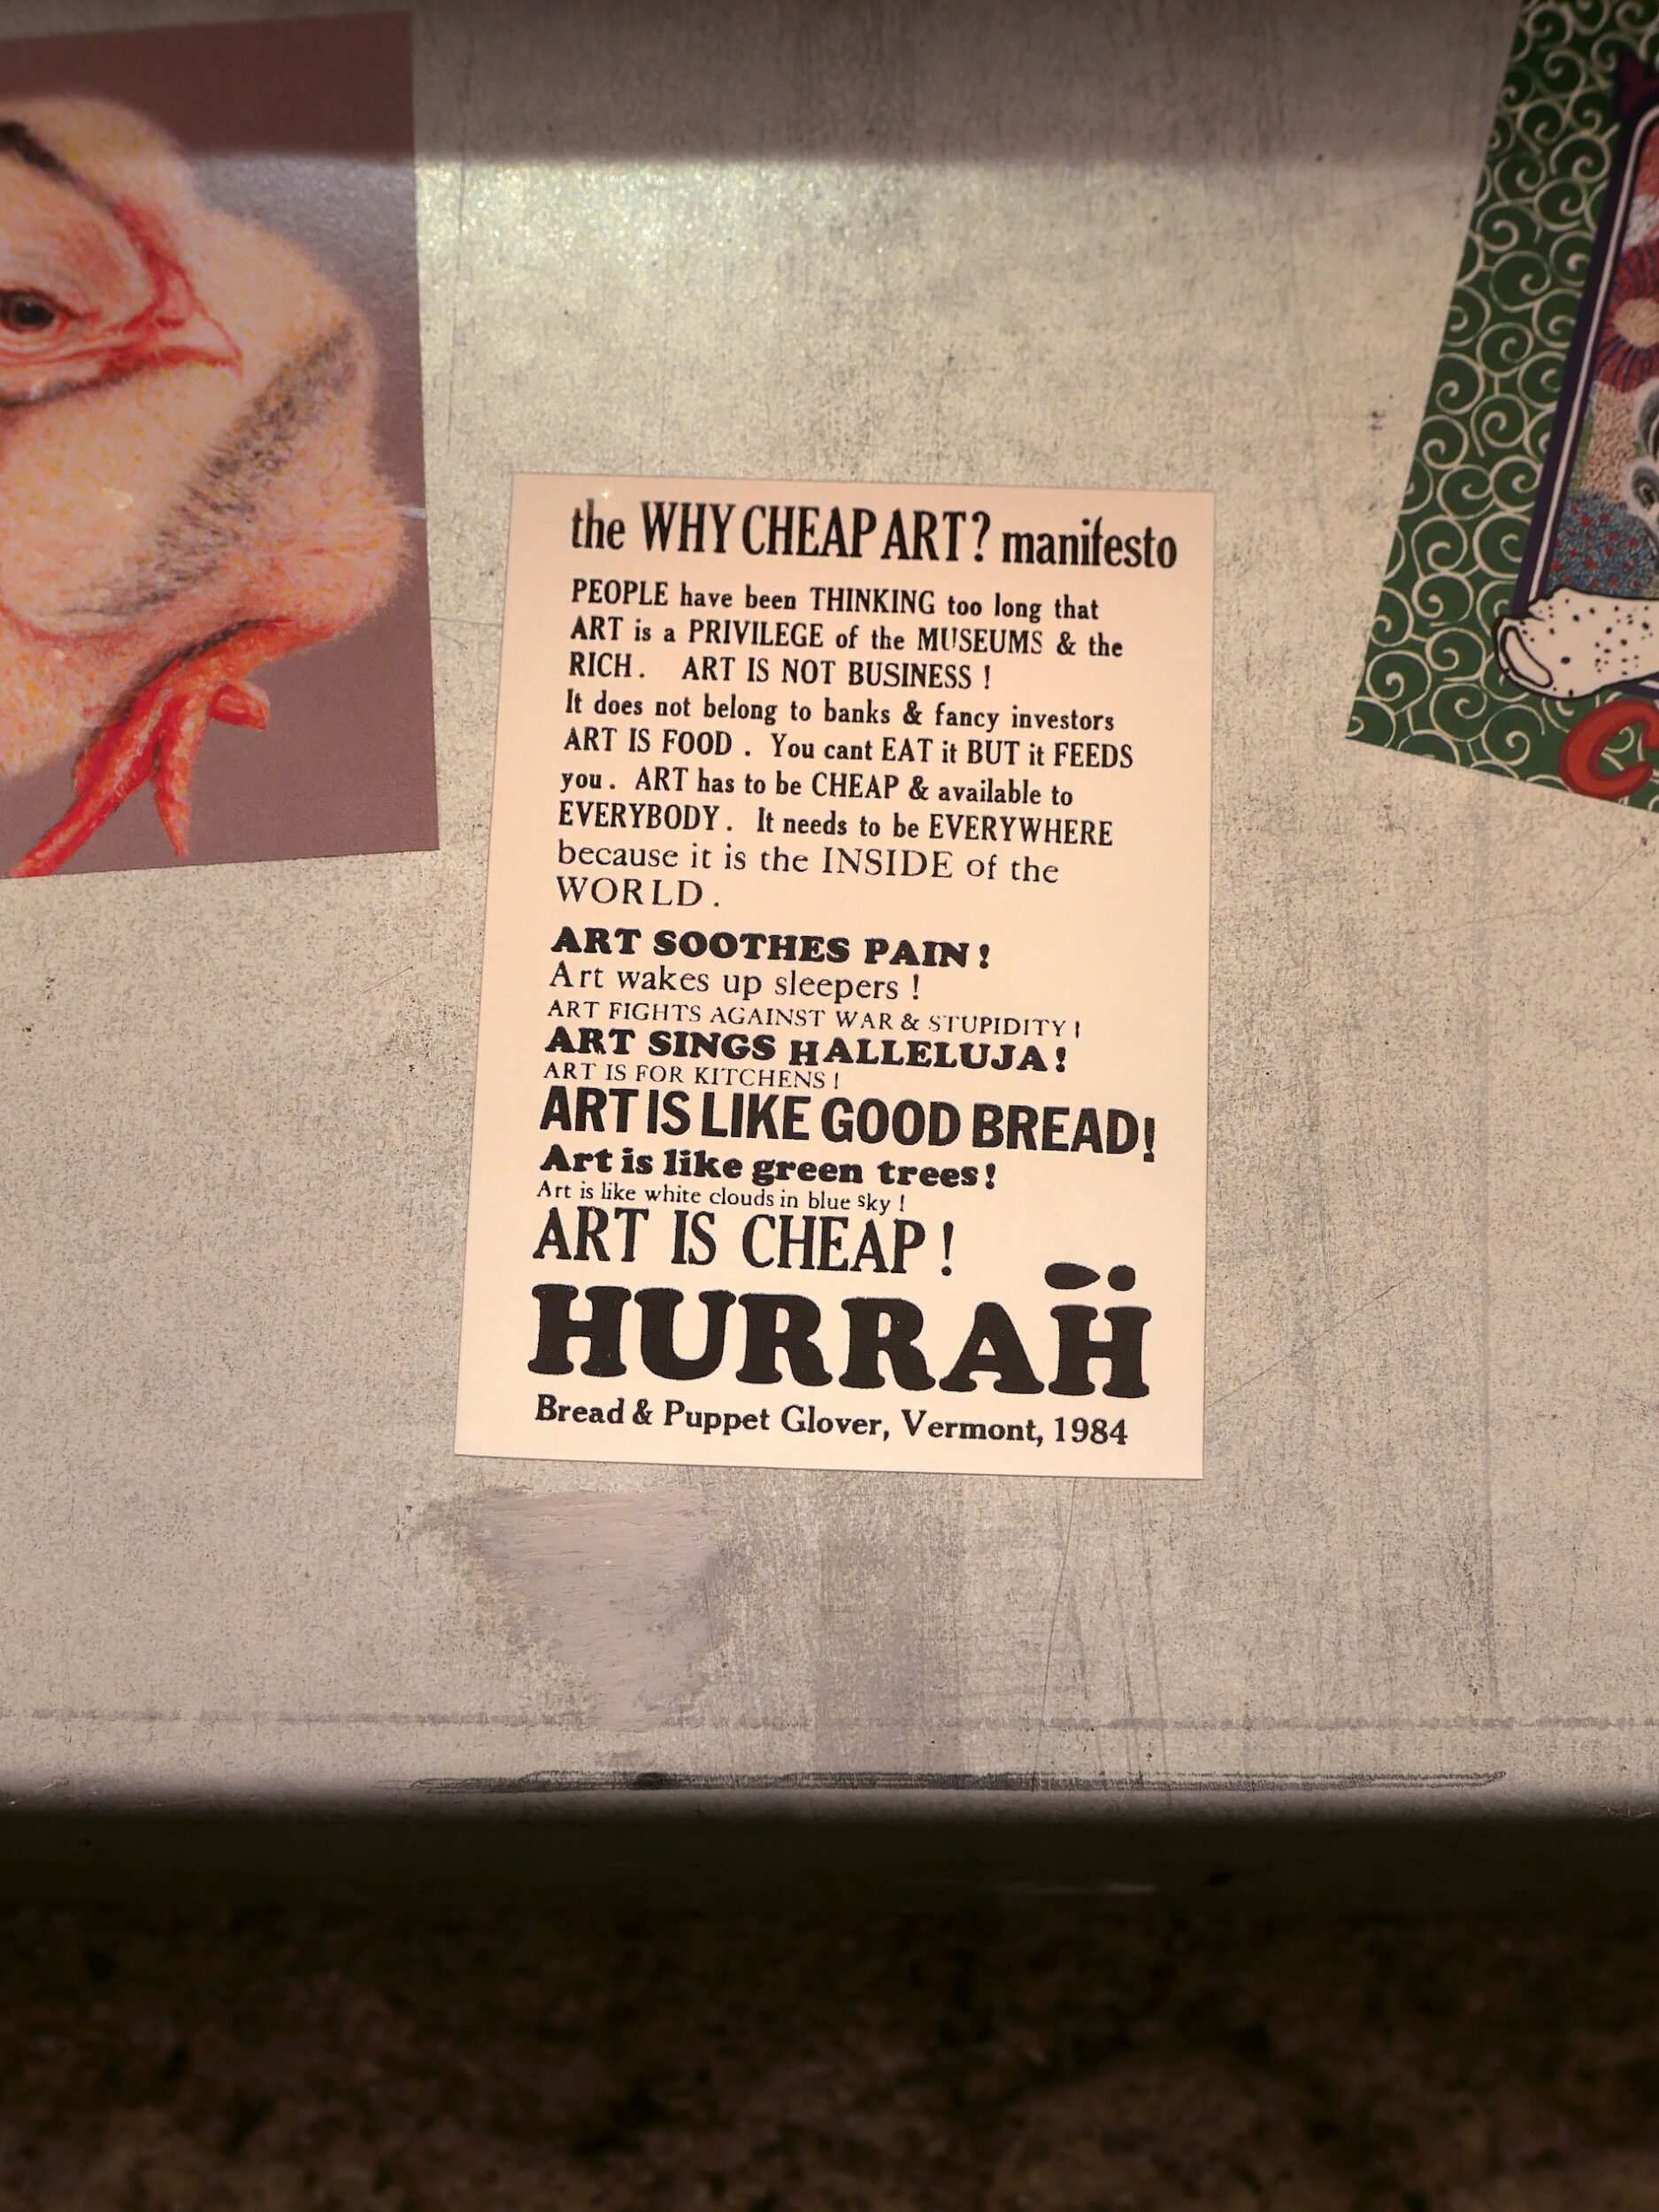 the WHY CHEAP ART? manifesto
PEOPLE have been THINKING too long that
ART is a PRIVILEGE of the MUSEUMS & the
RICH. ART IS NOT BUSINESS !
It does not belong to banks & fancy investors
ART IS FOOD . You cant EAT it BUT it FEEDS
you. ART has to be CHEAP & available to
EVERYBODY. It needs to be EVERYWHERE
because it is the INSIDE of the
WORLD.
ART SOOTHES PAIN!
Art wakes up sleepers !
ART FIGHTS AGAINST WAR & STUPIDITY !
ART SINGS HALLELUJA!
ART IS FOR KITCHENS !
ART IS LIKE GOOD BREAD!
Art is like green trees!
Art is like white clouds in blue sky !
ART IS CHEAP !
HURRAH
Bread & Puppet Glover, Vermont, 1984
C